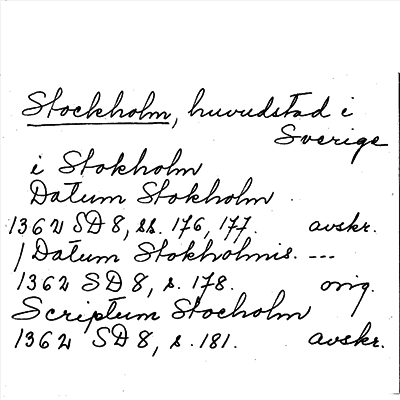 Stockholm, huvudstad i
Sverige
i Stokholm
Datum Stokholm
1362 SD 8, ss. 176, 177. avskr.
/ Datum Stokholmis. ---
1362 SD 8, s. 178. orig.
Scriptum Stocholm
1362 SD 8, s. 181. avskr.